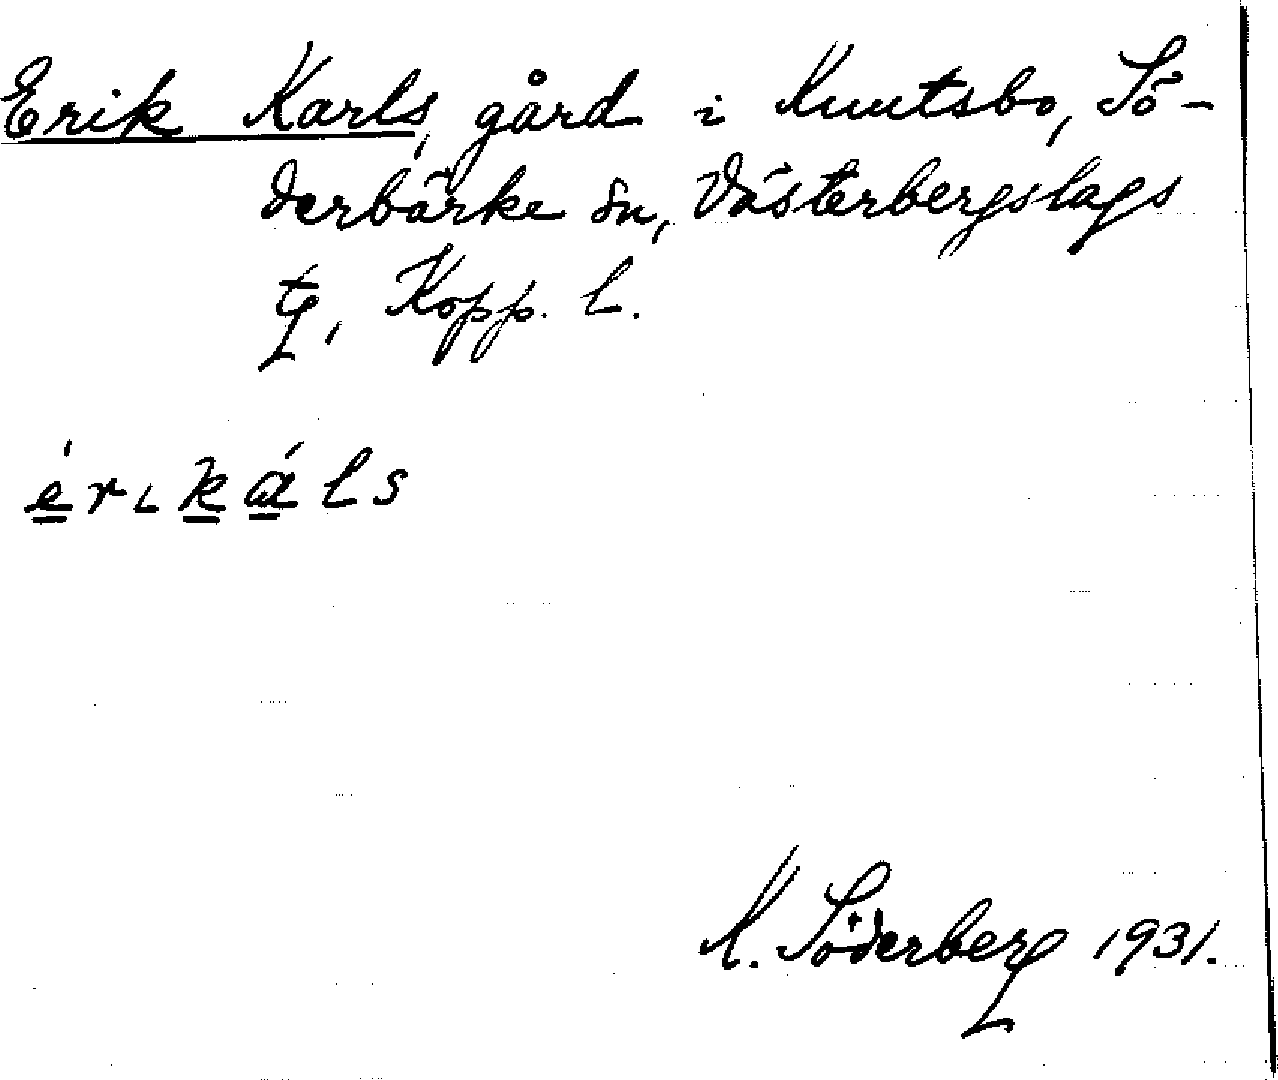 Erik Karls, gård i Knutsbo, Sö-
derbärke sn, Västerbergslags
tg, Kopp. l.
érɩkáls
K. Söderberg 1931.